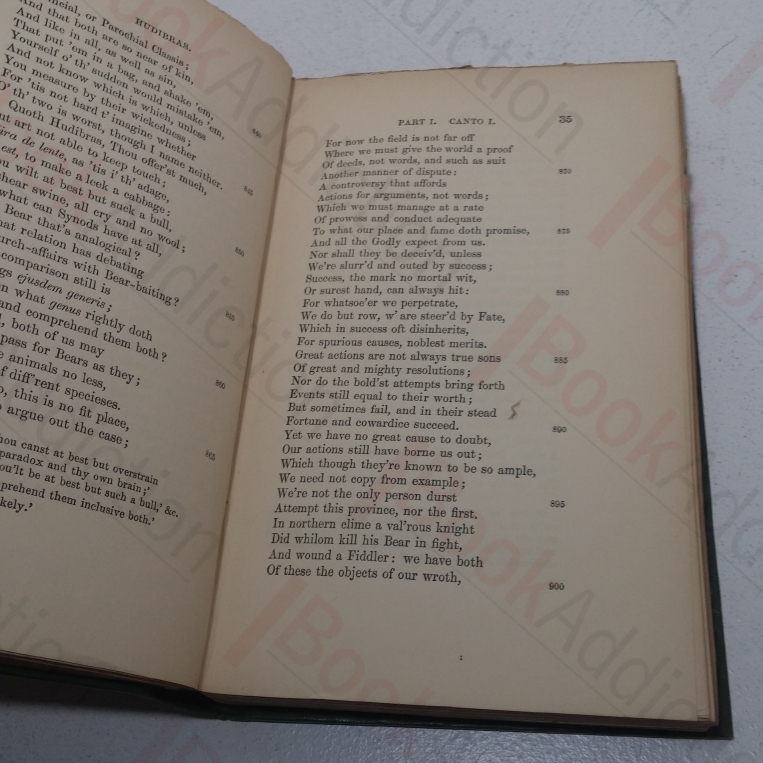 HUDIBRAS.
or Parochial Classis;
And that both are so near of kin,
And like in all, as well as sin,
That put 'em in a bag, and shake 'em,
Yourself o' th' sudden would mistake 'em,
And not know which is which, unless
You measure by their wickedness;
For 'tis not hard t' imagine whether
O' th' two is worst, though I name neither.
Quoth Hudibras, Thou offer'st much,
art not able to keep touch;
de lente, as 'tis i' th' adage,
est, to make a leek a cabbage:
wilt at best but suck a bull,
shear swine, all cry and no wool;
what can Synods have at all,
Bear that's analogical?
relation has debating
with Bear-baiting?
comparison still is
ejusdem generis;
what genus rightly doth
and comprehend them both?
both of us may
pass for Bears as they;
animals no less,
diff'rent specieses.
this is no fit place,
argue out the case;
865
canst at best but overstrain
paradox and thy own brain;'
be at best but such a bull,' &c.
them inclusive both.'
PART I. CANTO I. 35
For now the field is not far off
Where we must give the world a proof
Of deeds, not words, and such as suit
Another manner of dispute: 870
A controversy that affords
Actions for arguments, not words;
Which we must manage at a rate
Of prowess and conduct adequate
To what our place and fame doth promise, 875
And all the Godly expect from us.
Nor shall they be deceiv'd, unless
We're slurr'd and outed by success;
Success, the mark no mortal wit,
Or surest hand, can always hit: 880
For whatsoe'er we perpetrate,
We do but row, w' are steer'd by Fate,
Which in success oft disinherits,
For spurious causes, noblest merits.
Great actions are not always true sons 885
Of great and mighty resolutions;
Nor do the bold'st attempts bring forth
Events still equal to their worth;
But sometimes fail, and in their stead
Fortune and cowardice succeed. 890
Yet we have no great cause to doubt,
Our actions still have borne us out;
Which though they're known to be so ample,
We need not copy from example;
We're not the only person durst 895
Attempt this province, nor the first.
In northern clime a val'rous knight
Did whilom kill his Bear in fight,
And wound a Fiddler: we have both
Of these the objects of our wroth, 900
BookAddiction